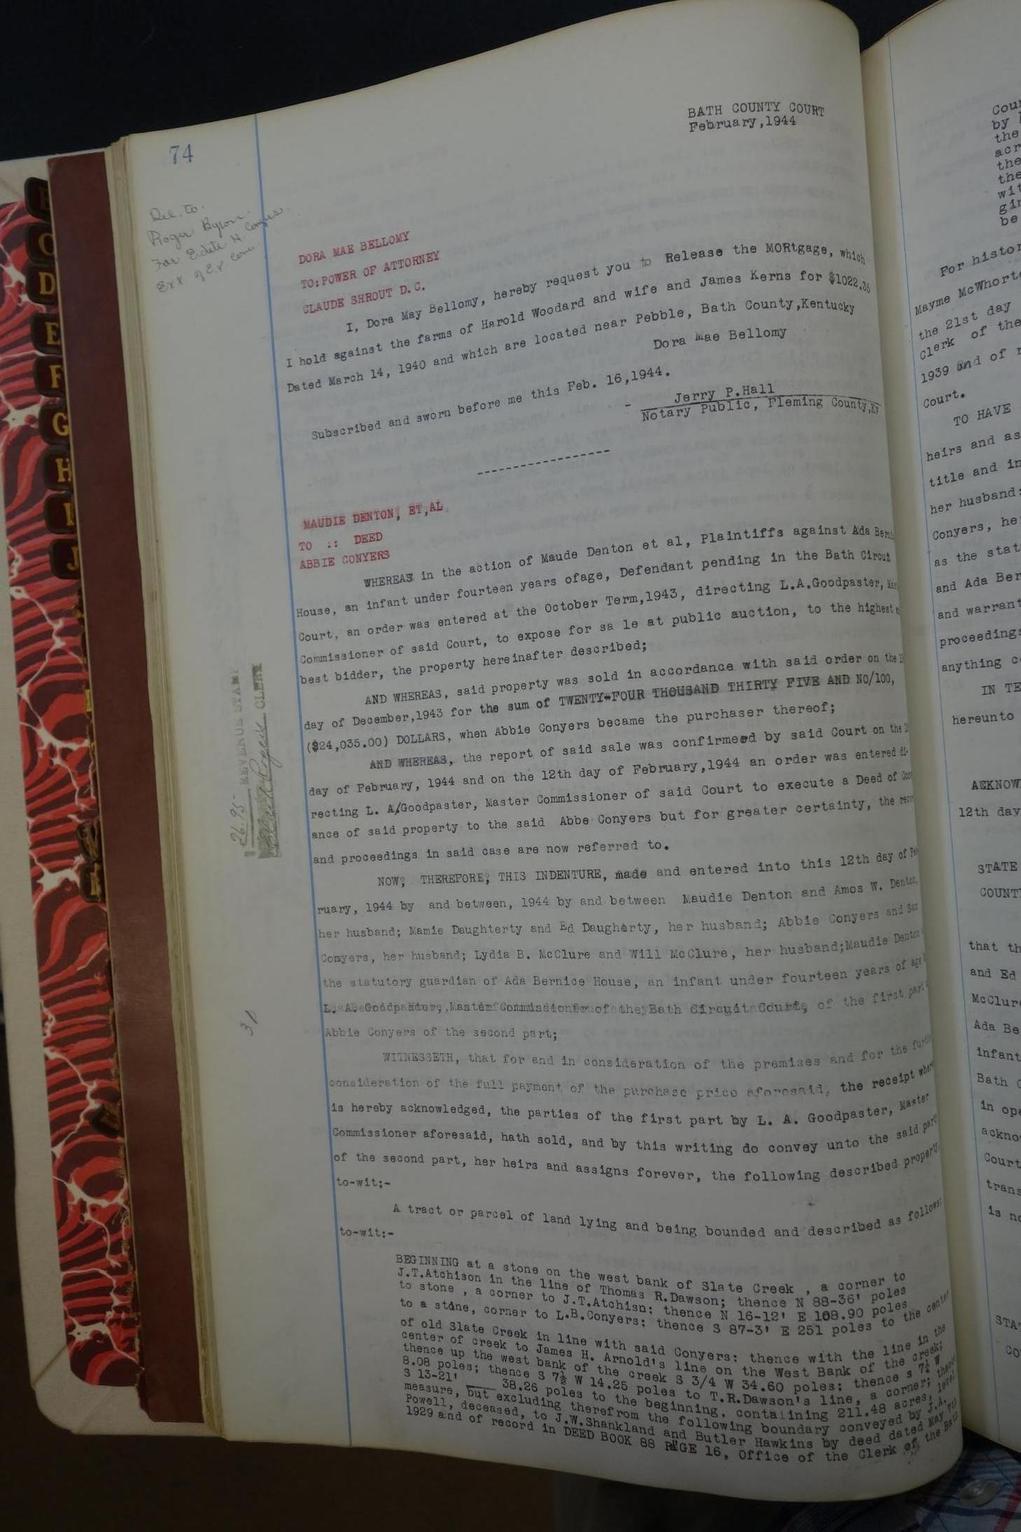 74
BATH COUNTY COURT
February,1944
Del. to.
Roger Byron.
For Edith H Conyers.
Exx of Ex Con
DORA MAE BELLOMY
TO:POWER OF ATTORNEY
CLAUDE SHROUT D.C.
I, Dora May Bellomy, hereby request you to Release the MORtgage, which
I hold against the farms of Harold Woodard and wife and James Kerns for $1022.36
Dated March 14, 1940 and which are located near Pebble, Bath County,Kentucky
Dora Mae Bellomy
Subscribed and sworn before me this Feb. 16,1944.
- Jerry P.Hall
Notary Public, Fleming County,Ky
MAUDIE DENTON, ET,AL
TO :: DEED
ABBIE CONYERS
WHEREAS in the action of Maude Denton et al, Plaintiffs against Ada Berni
House, an infant under fourteen years ofage, Defendant pending in the Bath Circut
Court, an order was entered at the October Term,1943, directing L.A.Goodpaster, Mas
Commissioner of said Court, to expose for sa le at public auction, to the highest
best bidder, the property hereinafter described;
AND WHEREAS, said property was sold in accordance with said order on the
day of December,1943 for the sum of TWENTY-FOUR THOUSAND THIRTY FIVE AND NO/100,
($24,035.00) DOLLARS, when Abbie Conyers became the purchaser thereof;
AND WHEREAS, the report of said sale was confirmeed by said Court on the
day of February, 1944 and on the 12th day of February,1944 an order was entered di-
recting L. A/Goodpaster, Master Commissioner of said Court to execute a Deed of Con
ance of said property to the said Abbe Conyers but for greater certainty, the reco
and proceedings in said case are now referred to.
26.95 REVENUE STAM
CLERK
NOW, THEREFORE, THIS INDENTURE, made and entered into this 12th day of Fe
ruary, 1944 by and between, 1944 by and between Maudie Denton and Amos W. Denton,
her husband; Mamie Daughterty and Ed Daugherty, her husband; Abbie Conyers and
Conyers, her husband; Lydia B. McClure and Will McClure, her husband;Maudie Denton
the statutory guardian of Ada Bernice House, an infant under fourteen years of age
L. A. Goodpaster, Master Commissioner of the Bath Circuit Court, of the first part
Abbie Conyers of the second part;
31
WITNESSETH, that for and in consideration of the premises and for the furth
consideration of the full payment of the purchase price aforesaid, the receipt where
is hereby acknowledged, the parties of the first part by L. A. Goodpaster, Master
Commissioner aforesaid, hath sold, and by this writing do convey unto the said part
of the second part, her heirs and assigns forever, the following described property
to-wit;-
A tract or parcel of land lying and being bounded and described as follows:
to-wit:-
BEGINNING at a stone on the west bank of Slate Creek , a corner to
J.T.Atchison in the line of Thomas R.Dawson; thence N 88-36' poles
to stone , a corner to J.T.Atchisn: thence N 16-12' E 108.90 poles
to a stone, corner to L.B.Conyers; thence S 87-3' E 251 poles to the center
of old Slate Creek in line with said Conyers: thence with the line in the
center of creek to James H. Arnold's line on the West Bank of the creek;
thence up the west bank of the creek S 3/4 W 34.60 poles: thence S 7½ W
8.08 poles; thence S 7½ W 14.25 poles to T.R.Dawson's line, a corner; thence
S 13-21' __ 38.26 poles to the beginning, containing 211.48 acres,
measure, but excluding therefrom the following boundary conveyed by J.A.
Powell, deceased, to J.W.Shankland and Butler Hawkins by deed dated May
1929 and of record in DEED BOOK 88 PAGE 16, Office of the Clerk of the Bath
Cou
by
the
acr
the
the
wit
gin
be
For histor
Mayme McWhort
the 21st day
Clerk of the
1939 and of r
Court.
TO HAVE
heirs and as
title and in
her husband:
Conyers, he
as the stat
and Ada Ber
and warrant
proceedings
anything c
IN TE
hereunto
AEKNOW
12th day
STATE
COUNT
that th
and Ed
McClur
Ada Be
infant
Bath C
in ope
ackno
Court
trans
is no
STA
CO